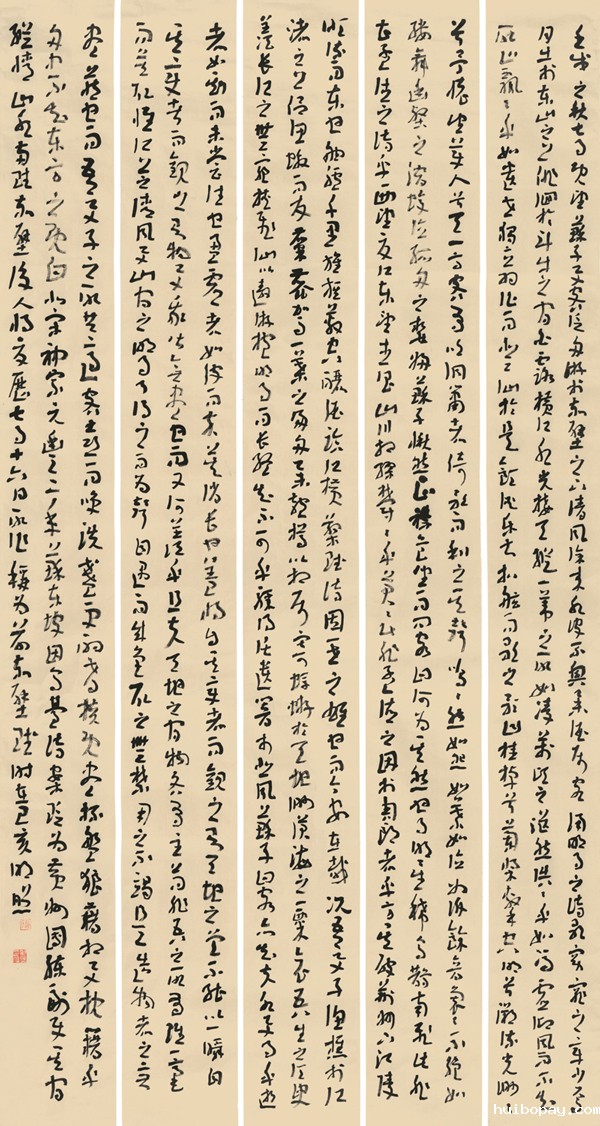 壬戌之秋七月既望蘇子與客泛舟遊於赤壁之下清風徐來水波不興舉酒屬客誦明月之詩歌窈窕之章少焉
月出於東山之上徘徊於斗牛之間白露橫江水光接天縱一葦之所如凌萬頃之茫然浩浩乎如馮虛御風而不知
其所止飄飄乎如遺世獨立羽化而登仙於是飲酒樂甚扣舷而歌之歌曰桂棹兮蘭槳擊空明兮溯流光渺渺
兮予懷望美人兮天一方客有吹洞簫者倚歌而和之其聲嗚嗚然如怨如慕如泣如訴餘音裊裊不絕如
縷舞幽壑之潛蛟泣孤舟之嫠婦蘇子愀然正襟危坐而問客曰何為其然也月明星稀烏鵲南飛此非
孟德之詩乎西望夏口東望武昌山川相繆鬱鬱乎蒼蒼此非孟德之困於周郎者乎方其破荊州下江陵
順流而東也舳艫千里旌旗蔽空釃酒臨江橫槊賦詩固一世之雄也而今安在哉況吾與子漁樵於江
渚之上侶魚蝦而友麋鹿駕一葉之扁舟舉匏樽以相屬寄蜉蝣於天地渺滄海之一粟哀吾生之須臾
羨長江之無窮挾飛仙以遨遊抱明月而長終知不可乎驟得託遺響於悲風蘇子曰客亦知夫水與月乎逝
者如斯而未嘗往也盈虛者如彼而卒莫消長也蓋將自其變者而觀之則天地之曾不能以一瞬自
其不變者而觀之則物與我皆無盡也而又何羨乎且夫天地之間物各有主苟非吾之所有雖一毫
而莫取惟江上清風與山間之明月耳得之而為聲目遇而成色取之無禁用之不竭是造物者之無
盡藏也而吾與子之所共適客喜而笑洗盞更酌肴核既盡杯盤狼藉相與枕藉乎
舟中不知東方之既白北宋神宗元豐二年蘇東坡因烏臺詩案貶為黃州團練副使其間
縱情山水兩遊赤壁後人將夏曆七月十六日所作稱為前赤壁賦時在己亥明照
huibopay.com